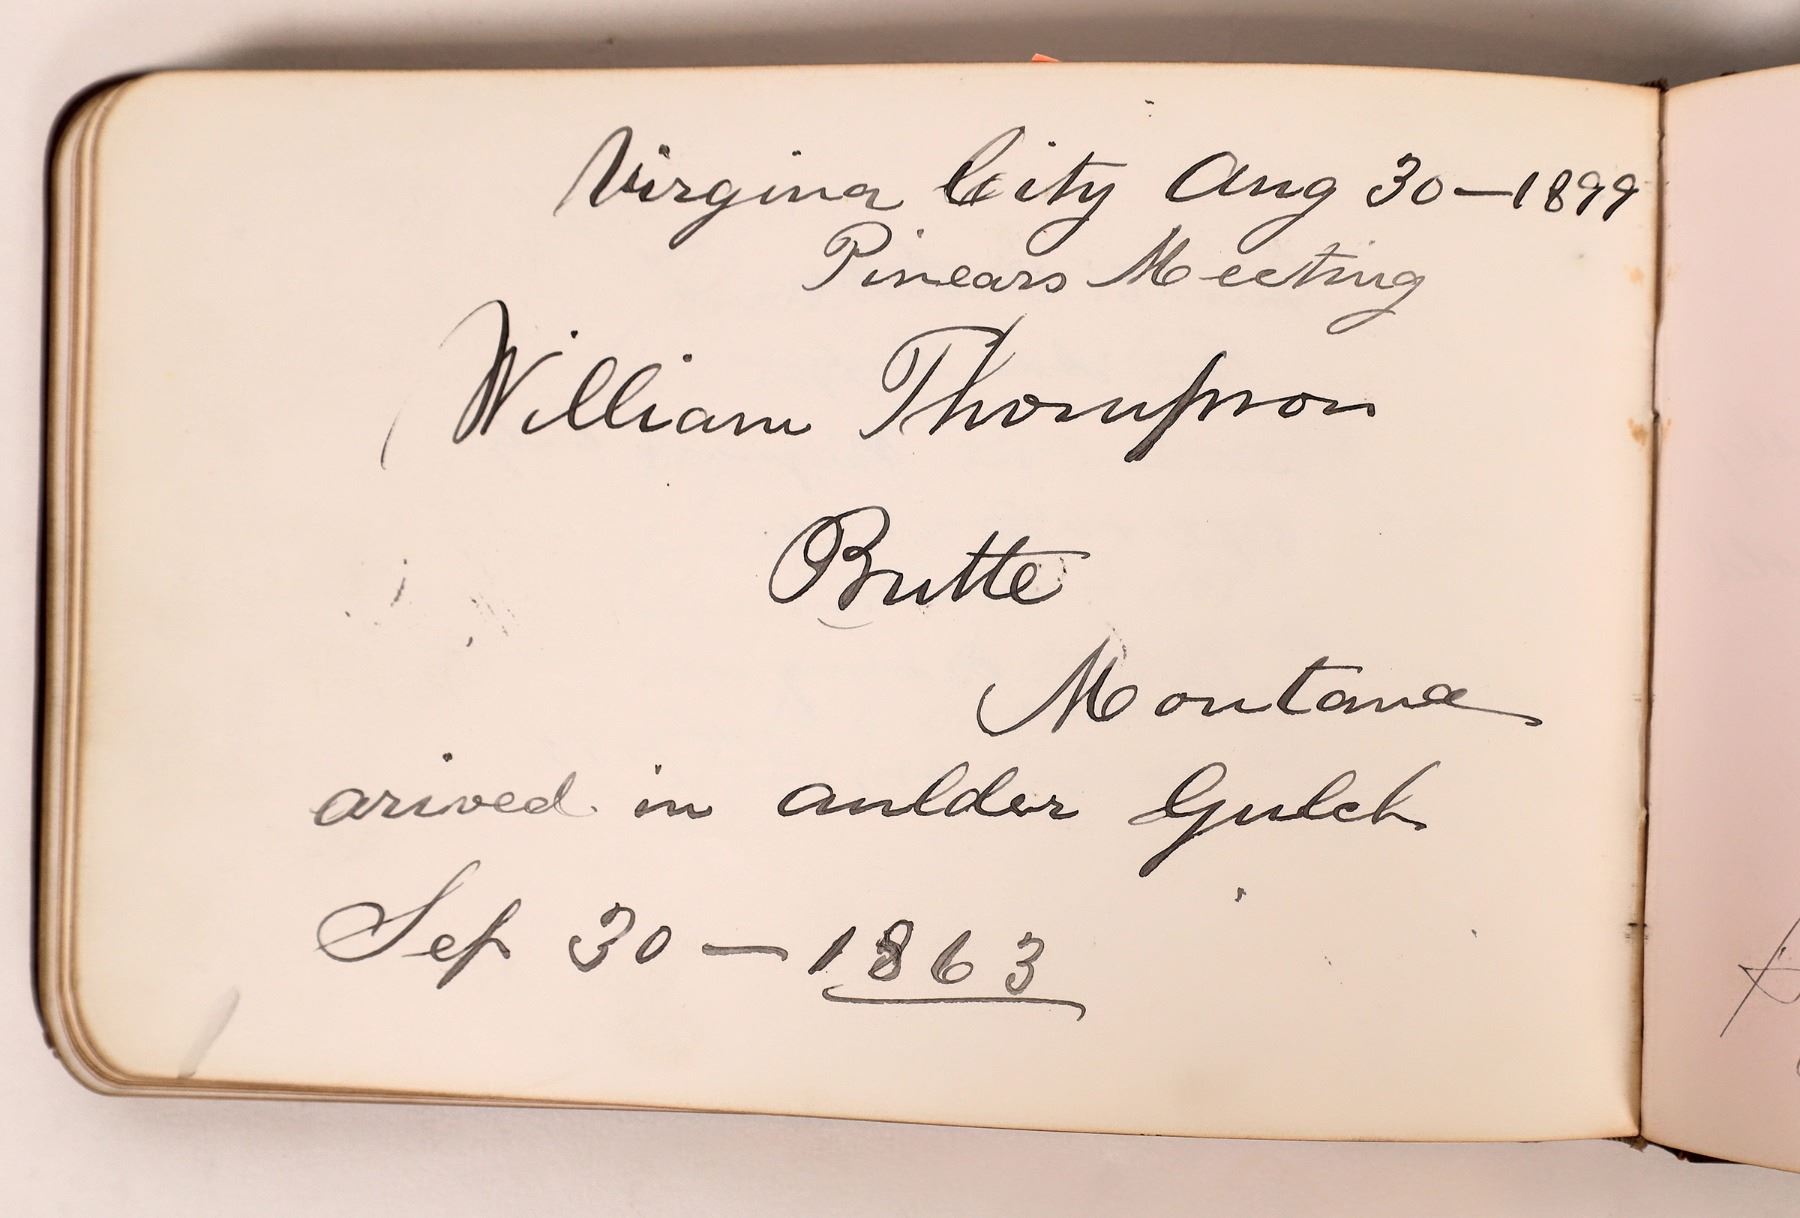 Virgina City Aug 30—1899
Pinears Meeting
William Thompson
Butte
Montana
arived in aulder Gulch
Sep 30—1863